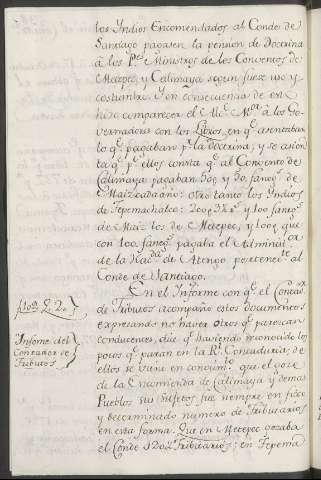 los Yndios Encomendados al Conde de
Santiago pagasen la pension de Doctrina
à los Pes. Ministros de los Conventos de
Metepec y Calimaya segun fuese uso y
costumbre. Y en consecuencia de esto
hizo comparecer el à los Go-
vernadores con los Libros en q. asentaban
lo q. pagaban pr. la doctrina, y se asien-
ta q. pr. ellos consta q. al Convento de
Calimaya pagaban 50 ps. y 50. faneg.s de
Maiz cada año: otro tanto los Yndios
de Tepemachalco: y 100 faneg.s
de Maiz los de Metepec, y 100 ps. que
con 100. faneg.s pagaba el Administ.or
de la Haz.da de Atengo pertenec.te al
Conde de Santiago.
En el Informe con q. el Contad.r
de Tributos acompaño estos documentos
expresando no haver otros q. parezcan
conducentes, dice q. haviendo reconocido los
pocos q. paran en la Rl. Contaduria, de
ellos se viene en conocim.to que el goze
de la Encomienda de Calimaya y demas
Pueblos sus sugetos fue siempre en fixo
y determinado numero de Tributarios
en esta forma. Que en Metepec gozaba
el Conde Tributarios: en Tepema
Informe del
Contador de
Tributos